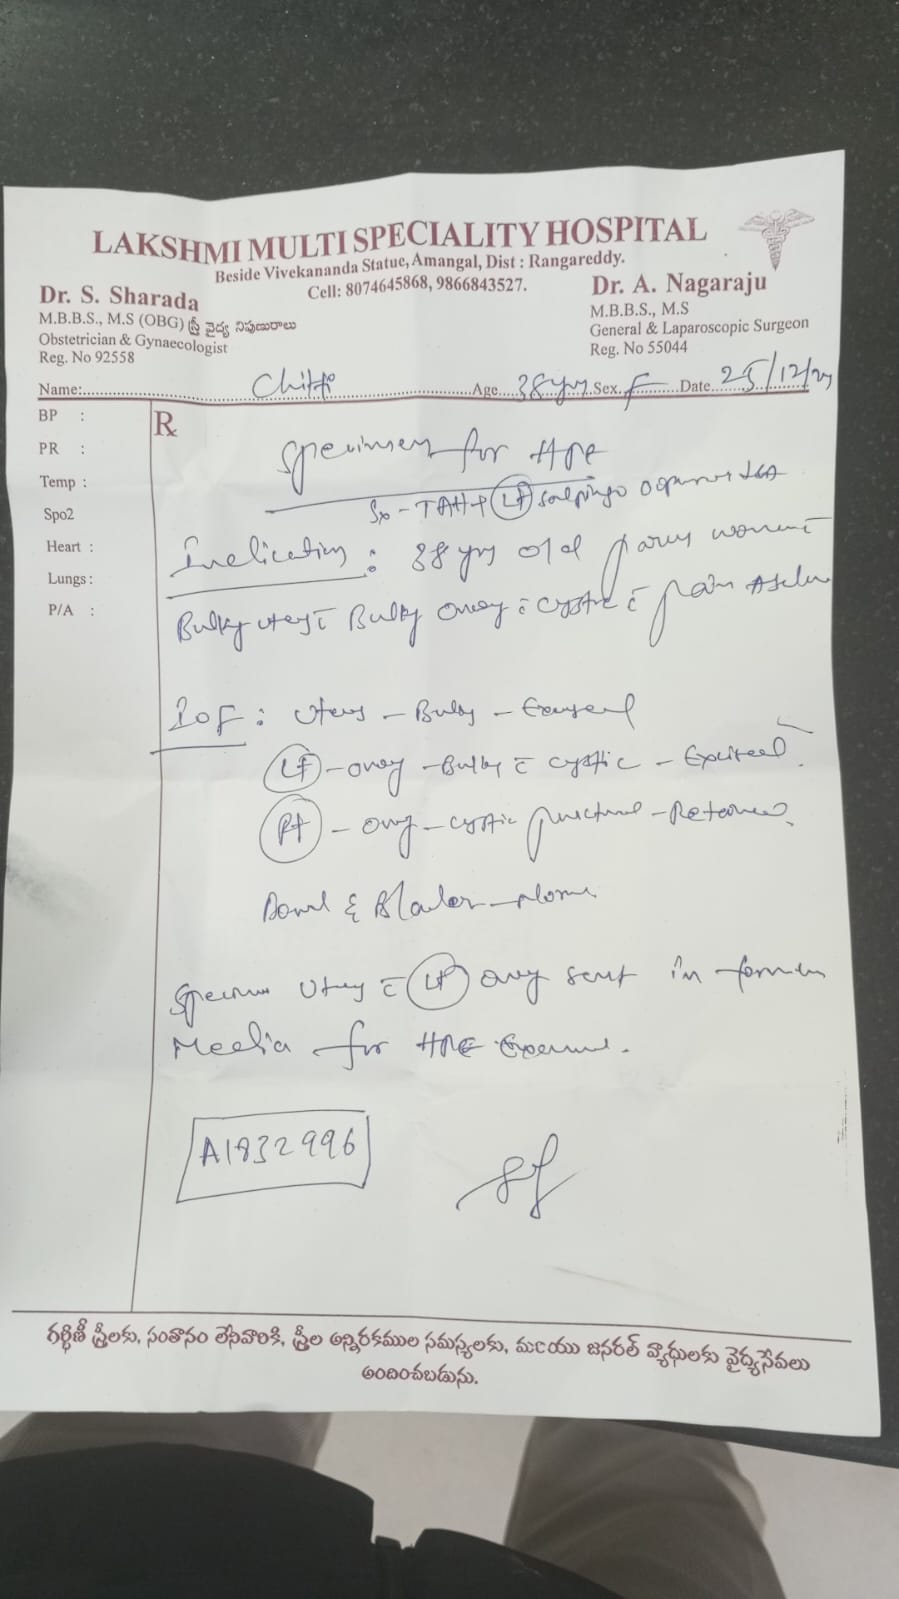 LAKSHMI MULTI SPECIALITY HOSPITAL
Beside Vivekananda Statue, Amangal, Dist : Rangareddy.
Cell: 8074645868, 9866843527.
Dr. S. Sharada
M.B.B.S., M.S (OBG) స్త్రీ వైద్య నిపుణురాలు
Obstetrician & Gynaecologist
Reg. No 92558
Dr. A. Nagaraju
M.B.B.S., M.S
General & Laparoscopic Surgeon
Reg. No 55044
Name: Chitti Age 38 yrs Sex F Date 25/12/24
BP :
PR :
Temp :
Spo2
Heart :
Lungs :
P/A :
Rx
Specimen for HPE
Sx - TAH + Lt salpingo
Indication : 38 yrs old women
Bulky uterus c̄ Bulky ovary c̄ cystic c̄ pain
IOF : Uterus - Bulky -
Lt - ovary - Bulky c̄ cystic - Excised
Rt - ovary - cystic - Retained
Bowel & Bladder -
Specimen Uterus c̄ Lt ovary sent in
Media for HPE
A1832996
గర్భిణీ స్త్రీలకు, సంతానం లేనివారికి, స్త్రీల అన్నిరకముల సమస్యలకు, మరియు జనరల్ వ్యాధులకు వైద్యసేవలు
అందించబడును.